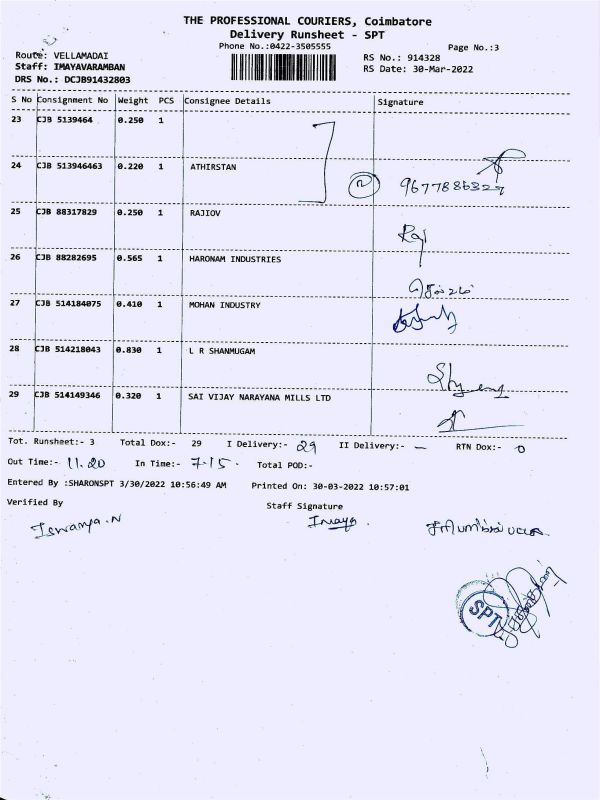 THE PROFESSIONAL COURIERS, Coimbatore
Delivery Runsheet - SPT
Phone No.:0422-3505555
Page No.:3
Route: VELLAMADAI
RS No.: 914328
Staff: IMAYAVARAMBAN
RS Date: 30-Mar-2022
DRS No.: DCJB91432803
S No Consignment No Weight PCS Consignee Details Signature
23 CJB 5139464 0.250 1
24 CJB 513946463 0.220 1 ATHIRSTAN
2
25 CJB 88317829 0.250 1 RAJIOV
Raj
26 CJB 88282695 0.565 1 HARONAM INDUSTRIES
27 CJB 514184075 0.410 1 MOHAN INDUSTRY
28 CJB 514218043 0.830 1 L R SHANMUGAM
29 CJB 514149346 0.320 1 SAI VIJAY NARAYANA MILLS LTD
Tot. Runsheet:- 3 Total Dox:- 29 I Delivery:- 29 II Delivery:- — RTN Dox:- 0
Out Time:- 11.20 In Time:- 7.15. Total POD:-
Entered By :SHARONSPT 3/30/2022 10:56:49 AM Printed On: 30-03-2022 10:57:01
Verified By Staff Signature
Iswarya.N
SPT